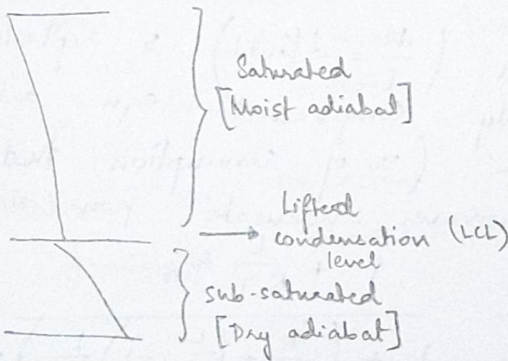 Saturated
[Moist adiabat]
Lifted
condensation (LCL)
level
sub-saturated
[Dry adiabat]